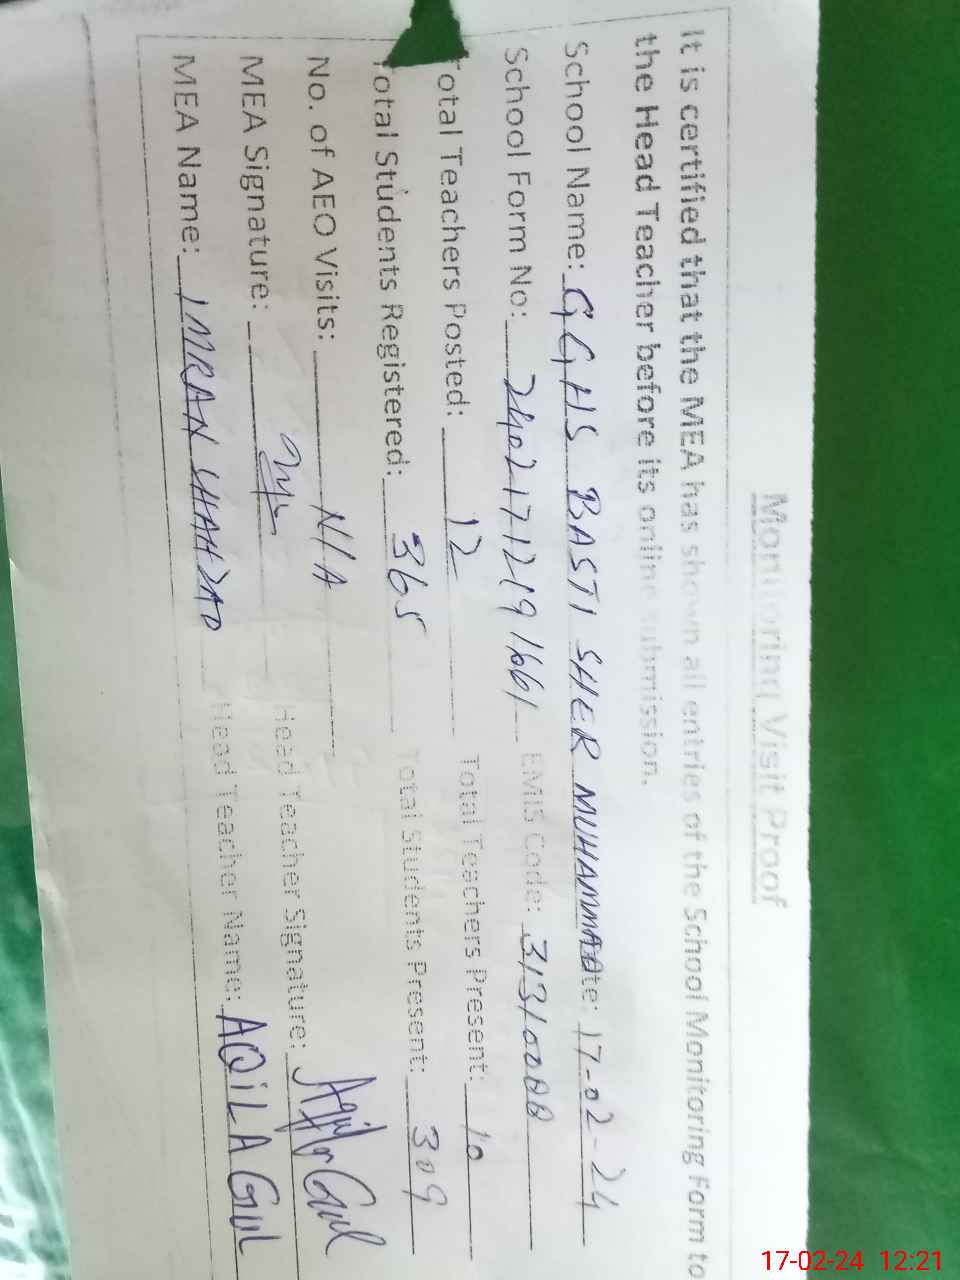 Monitoring Visit Proof
It is certified that the MEA has shown all entries of the School Monitoring Form to
the Head Teacher before its online submission.
School Name: GGHS BASTI SHER MUHAMMAD Date: 17-02-24
School Form No: 2402171219 1661 EMIS Code: 31310088
Total Teachers Posted: 12 Total Teachers Present: 10
Total Students Registered: 365 Total Students Present: 309
No. of AEO Visits: N/A
MEA Signature: Head Teacher Signature: Aqila Gul
MEA Name: IMRAN SHAHZAD Head Teacher Name: AQiLA Gul
17-02-24 12:21